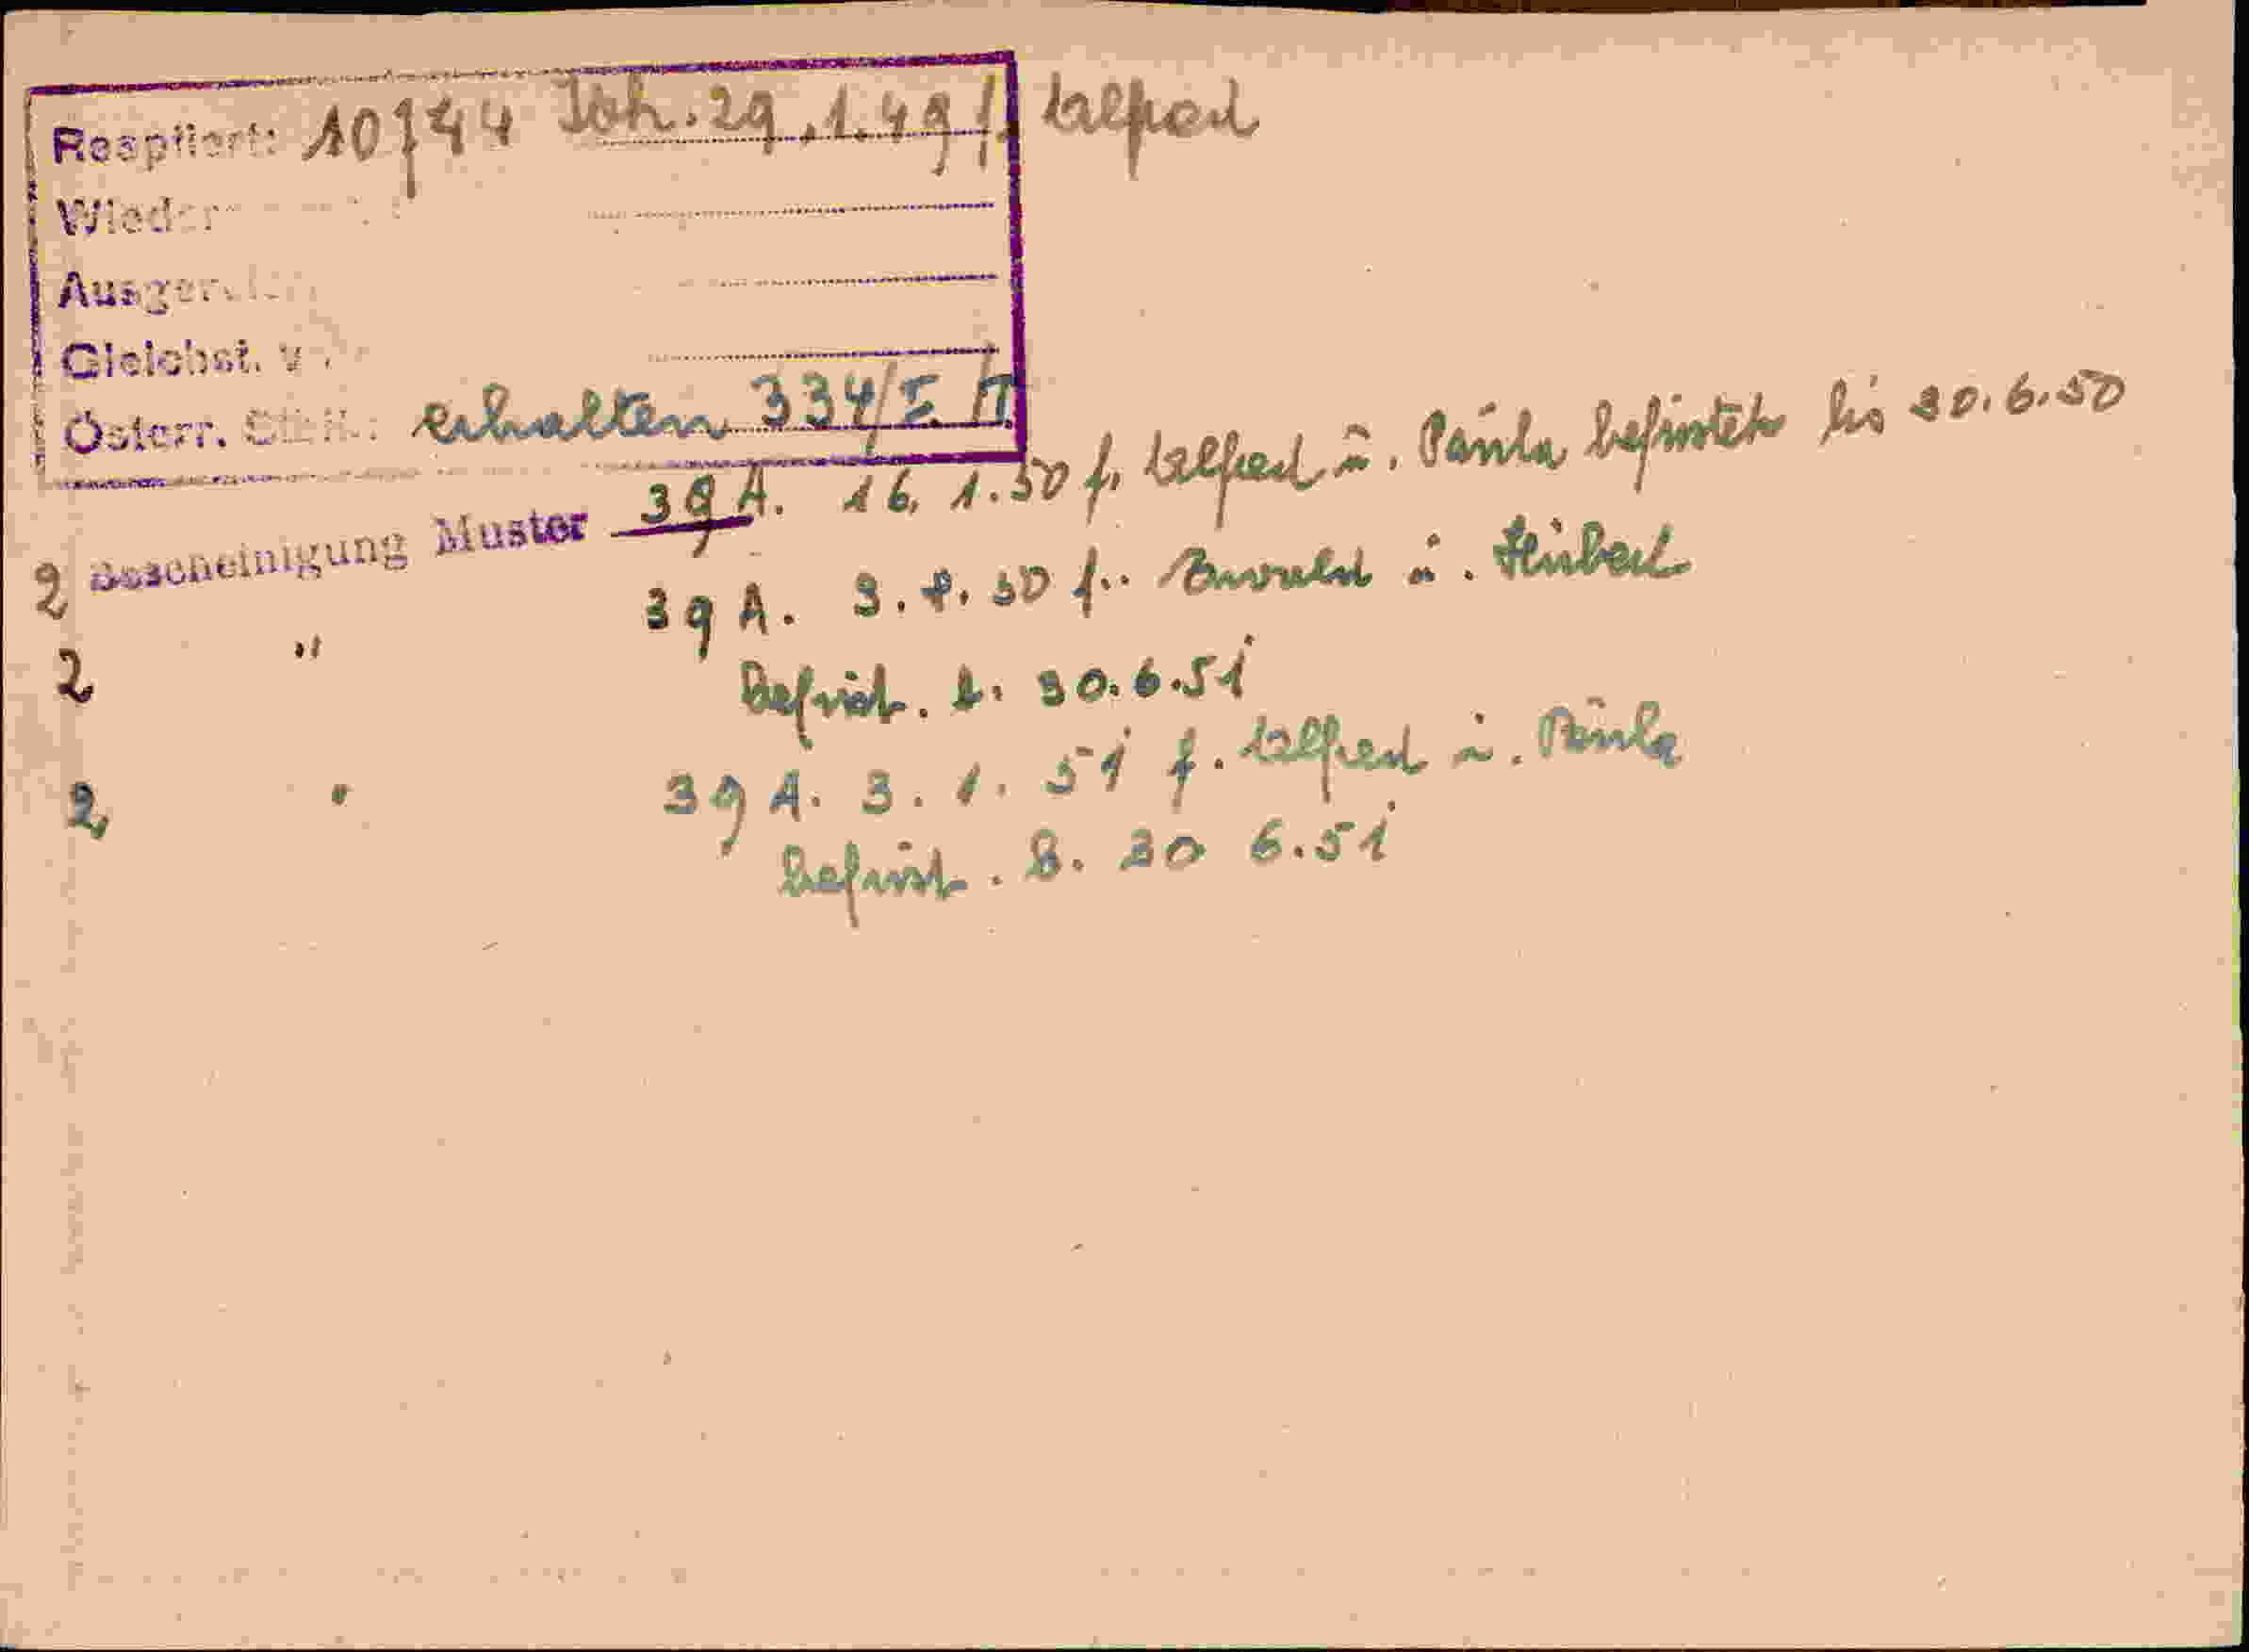 Reaptiert: 10744 Joh. 29.1.49 f. Alfred
Wieder
Ausger
Gleichst. v
Österr. erhalten 334/I. II
2 Bescheinigung Muster 39 A. 16. 1.50 f. Alfred ü. Paula befristet bis 30.6.50
2 " 39 A. 3. 50 f. ü. Hubert
befrist. b. 30.6.51
2 " 39 A. 3. 1. 51 f. Alfred ü. Paula
befrist. B. 30 6.51